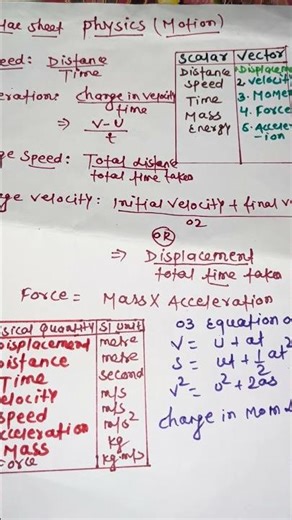 lae Sheet Physics (Motion)
eed: Distance
Time
Scalar Vector
Distance Displaceme
Speed 2. Velocit
Time 3. MOME
Mass 4. Force
Energy 5. Acceler
-ion
eration: Change in velocity
time
⇒ V-U
t
ge Speed: Total distance
total time taken
ge velocity: Initial velocity + final v
02
OR
⇒ Displacement
total time taken
Force = Mass X Acceleration
sical Quantity SI Unit
Displacement metre
Distance metre
Time second
elocity m/s
Speed m/s
cceleration m/s²
Mass kg
Force kg.m/s
03 Equation o
V = U + at
S = ut + 1/2 at²
V² = U² + 2as
Change in Mom